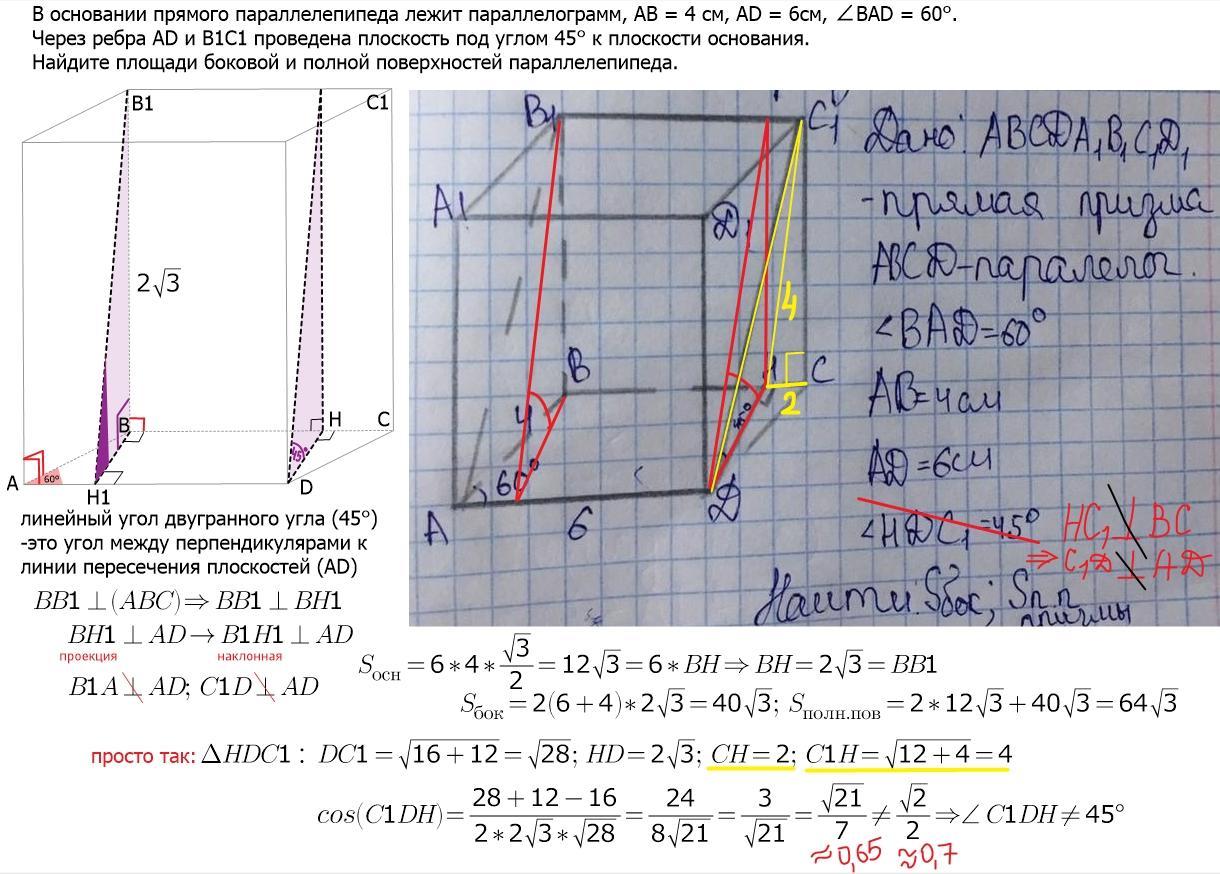 В основании прямого параллелепипеда лежит параллелограмм, AB = 4 см, AD = 6см, ∠BAD = 60°.
Через ребра AD и B1C1 проведена плоскость под углом 45° к плоскости основания.
Найдите площади боковой и полной поверхностей параллелепипеда.
B1
C1
2√3
B
H
C
45°
A
60°
H1
D
линейный угол двугранного угла (45°)
-это угол между перпендикулярами к
линии пересечения плоскостей (AD)
BB1 ⊥ (ABC) ⇒ BB1 ⊥ BH1
BH1 ⊥ AD → B1H1 ⊥ AD
проекция наклонная
B1A ⊥ AD; C1D ⊥ AD
B1
C1
A1
D1
4
B
H
C
4
2
45°
60°
A
6
D
Дано: ABCDA1B1C1D1
-прямая призма
ABCD-паралелог.
∠BAD=60°
AB=4см
AD=6см
∠HDC1=45°
HC1 ⊥ BC
⇒ C1D ⊥ AD
Найти: Sбок; Sп.п
призмы
Sосн = 6*4*√3/2 = 12√3 = 6*BH ⇒ BH = 2√3 = BB1
Sбок = 2(6+4)*2√3 = 40√3; Sполн.пов = 2*12√3+40√3 = 64√3
просто так: ΔHDC1: DC1 = √(16+12) = √28; HD = 2√3; CH = 2; C1H = √(12+4) = 4
cos(C1DH) = (28+12−16)/(2*2√3*√28) = 24/(8√21) = 3/√21 = √21/7 ≠ √2/2 ⇒ ∠C1DH ≠ 45°
≈0,65 ≈0,7